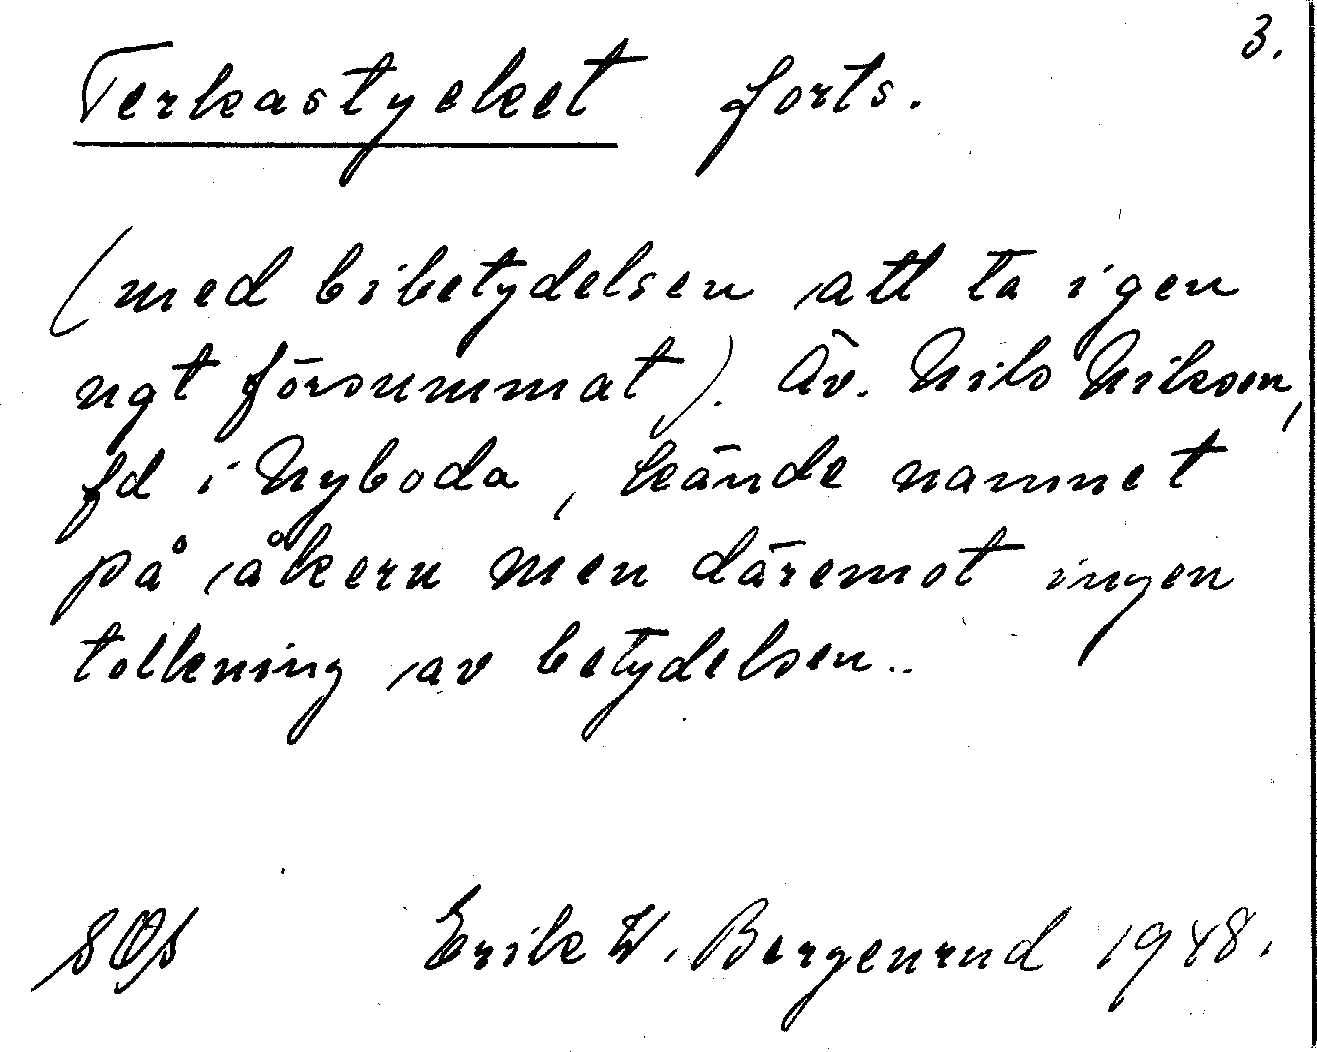 3.
Terkastycket forts.
(med bibetydelsen att ta igen
ngt försummat). Äv. Nils Nilsson,
fd i Nyboda, kände namnet
på åkern men däremot ingen
tolkning av betydelsen..
Erik W. Bergenrud 1948.